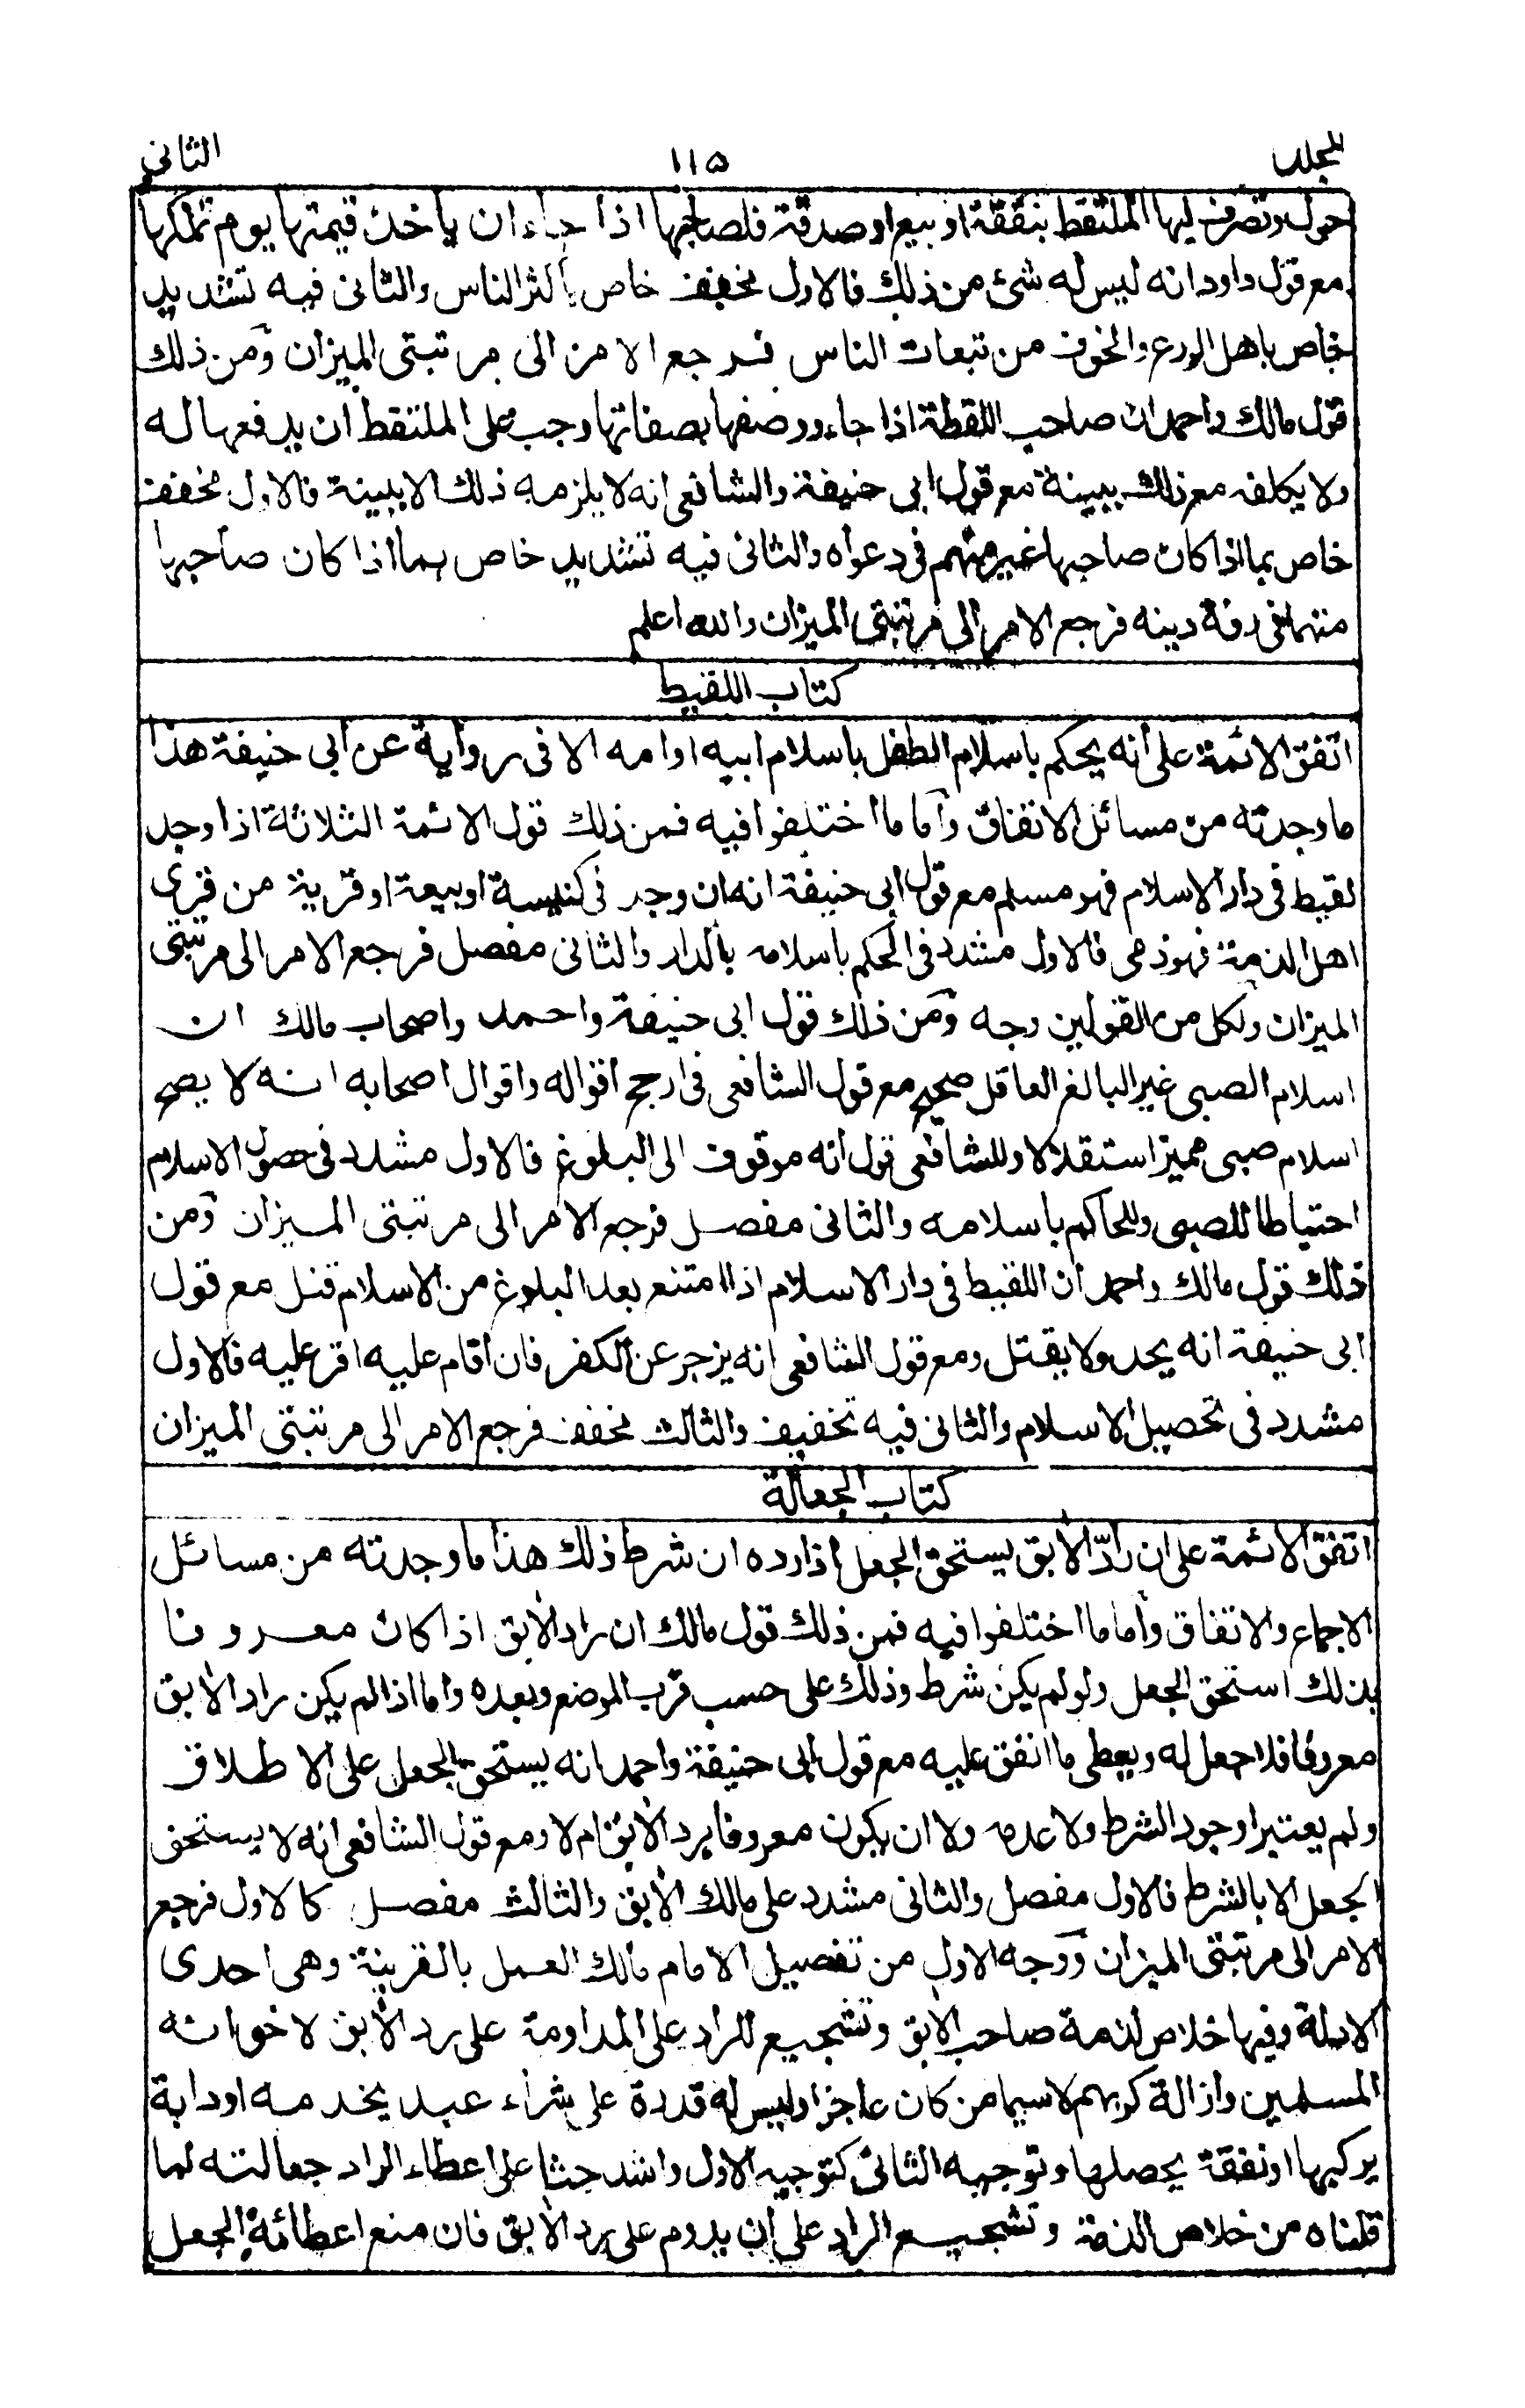 المجلد ١١٥ الثاني
حول وتصرف فيها الملتقط بنفقة او بيع او صدقة فلصاحبها اذا جاء ان يأخذ قيمتها يوم تملكها
مع قول داود انه ليس له شئ من ذلك فالاول مخفف خاص باكثر الناس والثانى فيه تشديد
خاص باهل الورع والخوف من تبعات الناس فرجع الامر الى مرتبتى الميزان ومن ذلك
قول مالك واحمد ان صاحب اللقطة اذا جاء ووصفها بصفاتها وجب على الملتقط ان يدفعها له
ولا يكلفه مع ذلك ببينة مع قول ابى حنيفة والشافعى انه لا يلزمه ذلك الا ببينة فالاول مخفف
خاص بما اذا كان صاحبها غير متهم فى دعواه والثانى فيه تشديد خاص بما اذا كان صاحبها
متهما فى رقة دينه فرجع الامر الى مرتبتى الميزان والله اعلم
كتاب اللقيط
اتفق الائمة على أنه يحكم باسلام الطفل باسلام ابيه او امه الا فى رواية عن ابى حنيفة هذا
ما وجدته من مسائل الاتفاق وأما ما اختلفوا فيه فمن ذلك قول الائمة الثلاثة اذا وجد
لقيط فى دار الاسلام فهو مسلم مع قول ابى حنيفة انه ان وجد فى كنيسة او بيعة او قرية من قرى
اهل الذمة فهو ذمى فالاول مشدد فى الحكم باسلامه بالدار والثانى مفصل فرجع الامر الى مرتبتى
الميزان ولكل من القولين وجه ومن ذلك قول ابى حنيفة واحمد واصحاب مالك ان
اسلام الصبى غير البالغ العاقل صحيح مع قول الشافعى فى ارجح اقواله واقوال اصحابه انه لا يصح
اسلام صبى مميز استقلالا وللشافعى قول انه موقوف الى البلوغ فالاول مشدد فى حصول الاسلام
احتياطا للصبى وللحاكم باسلامه والثانى مفصل فرجع الامر الى مرتبتى الميزان ومن
ذلك قول مالك واحمد ان اللقيط فى دار الاسلام اذا امتنع بعد البلوغ من الاسلام قتل مع قول
ابى حنيفة انه يحد ولا يقتل ومع قول الشافعى انه يزجر عن الكفر فان أقام عليه اقر عليه فالاول
مشدد فى تحصيل الاسلام والثانى فيه تخفيف والثالث مخفف فرجع الامر الى مرتبتى الميزان
كتاب الجعالة
اتفق الائمة على ان رادّ الآبق يستحق الجعل اذا رده ان شرط ذلك هذا ما وجدته من مسائل
الاجماع والاتفاق وأما ما اختلفوا فيه فمن ذلك قول مالك ان راد الآبق اذا كان معروفا
بذلك استحق الجعل ولو لم يكن شرط وذلك على حسب قرب الموضع وبعده واما اذا لم يكن راد الآبق
معروفا فلا جعل له ويعطى ما انفق عليه مع قول ابى حنيفة واحمد انه يستحق الجعل على الاطلاق
ولم يعتبرا وجود الشرط ولا عدمه ولا ان يكون معروفا برد الآبق ام لا ومع قول الشافعى انه لا يستحق
الجعل الا بالشرط فالاول مفصل والثانى مشدد على مالك الآبق والثالث مفصل كالاول فرجع
الامر الى مرتبتى الميزان ووجه الاول من تفصيل الامام مالك العمل بالقرينة وهى احدى
الادلة وفيها خلاص لذمة صاحب الآبق وتشجيع للراد على المداومة على رد الآبق لاخوانه
المسلمين وازالة كربهم لاسيما من كان عاجزا وليس له قدرة على شراء عبد يخدمه او دابة
يركبها او نفقة يحصلها وتوجيه الثانى كتوجيه الاول واشد حثا على اعطاء الراد جعالته لما
قلناه من خلاص الذمة وتشجيع الراد على ان يدوم على رد الآبق فان منع اعطائه الجعل